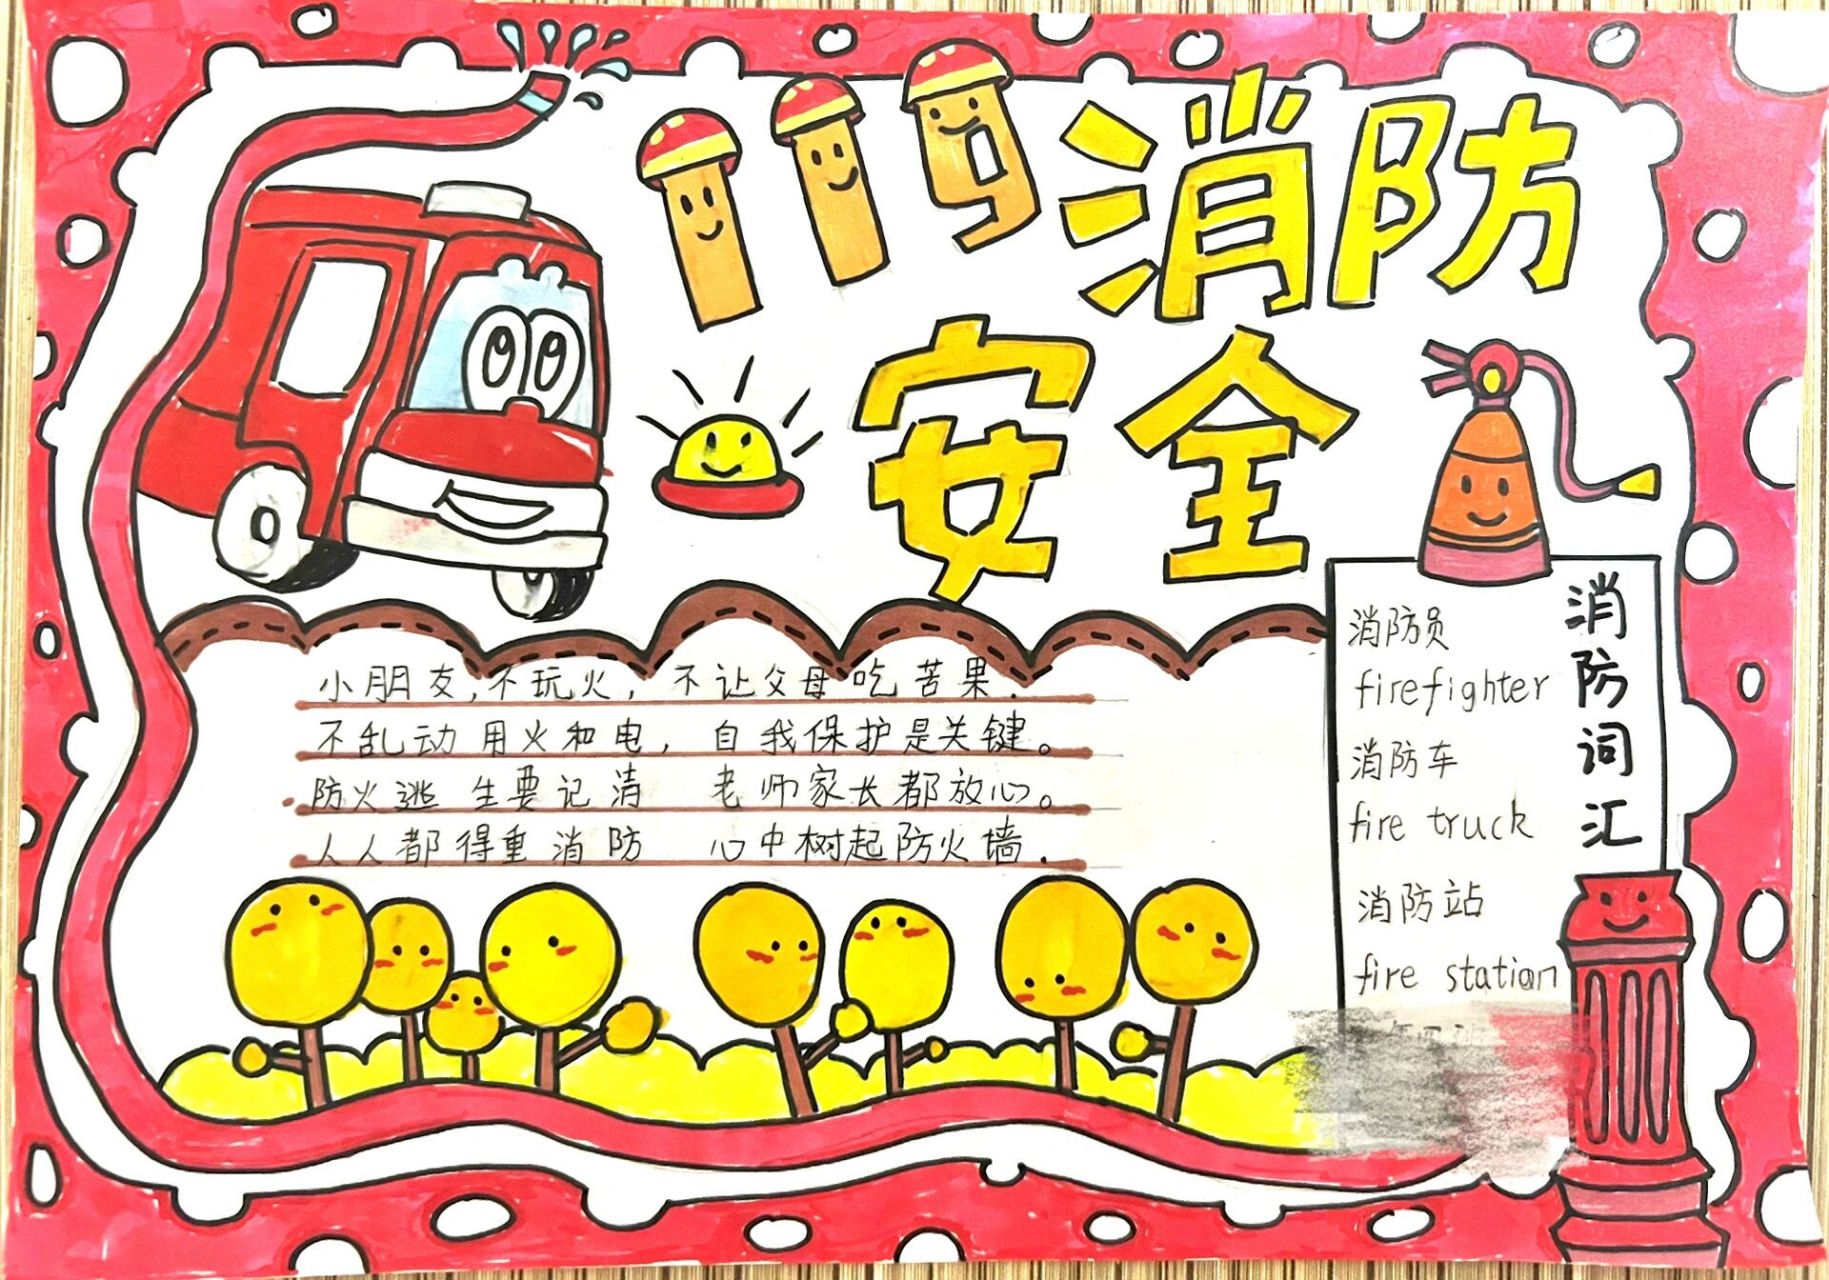 119消防
安全
小朋友,不玩火,不让父母吃苦果.
不乱动用火和电,自我保护是关键。
防火逃生要记清 老师家长都放心。
人人都得重消防 心中树起防火墙.
消防词汇
消防员
firefighter
消防车
fire truck
消防站
fire station